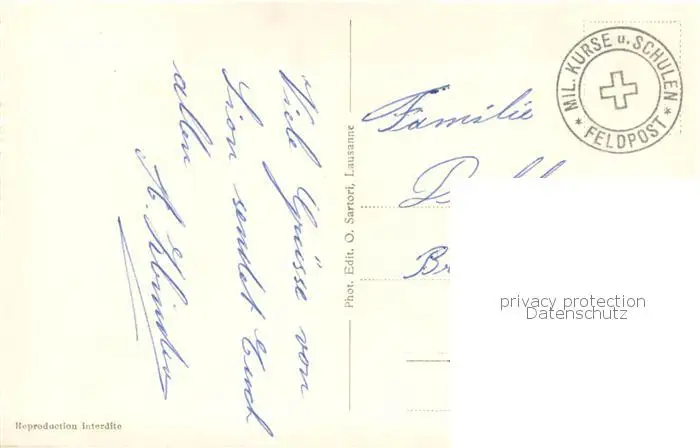 Viele Grüsse von
Sion sendet Euch
allen
Phot. Edit. O. Sartori, Lausanne
Familie
MIL. KURSE u. SCHULEN
* FELDPOST *
privacy protection
Datenschutz
Reproduction interdite